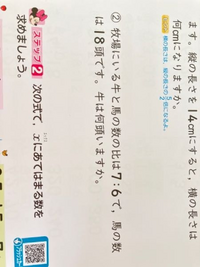 ます。縦の長さを14cmにすると、横の長さは
何cmになりますか。
横の長さは、縦の長さの
② 牧場にいる牛と馬の数の比は7:6で、馬の数
は18頭です。牛は何頭いますか。
ステップ2 次の式で、xにあてはまる数を
求めましょう。